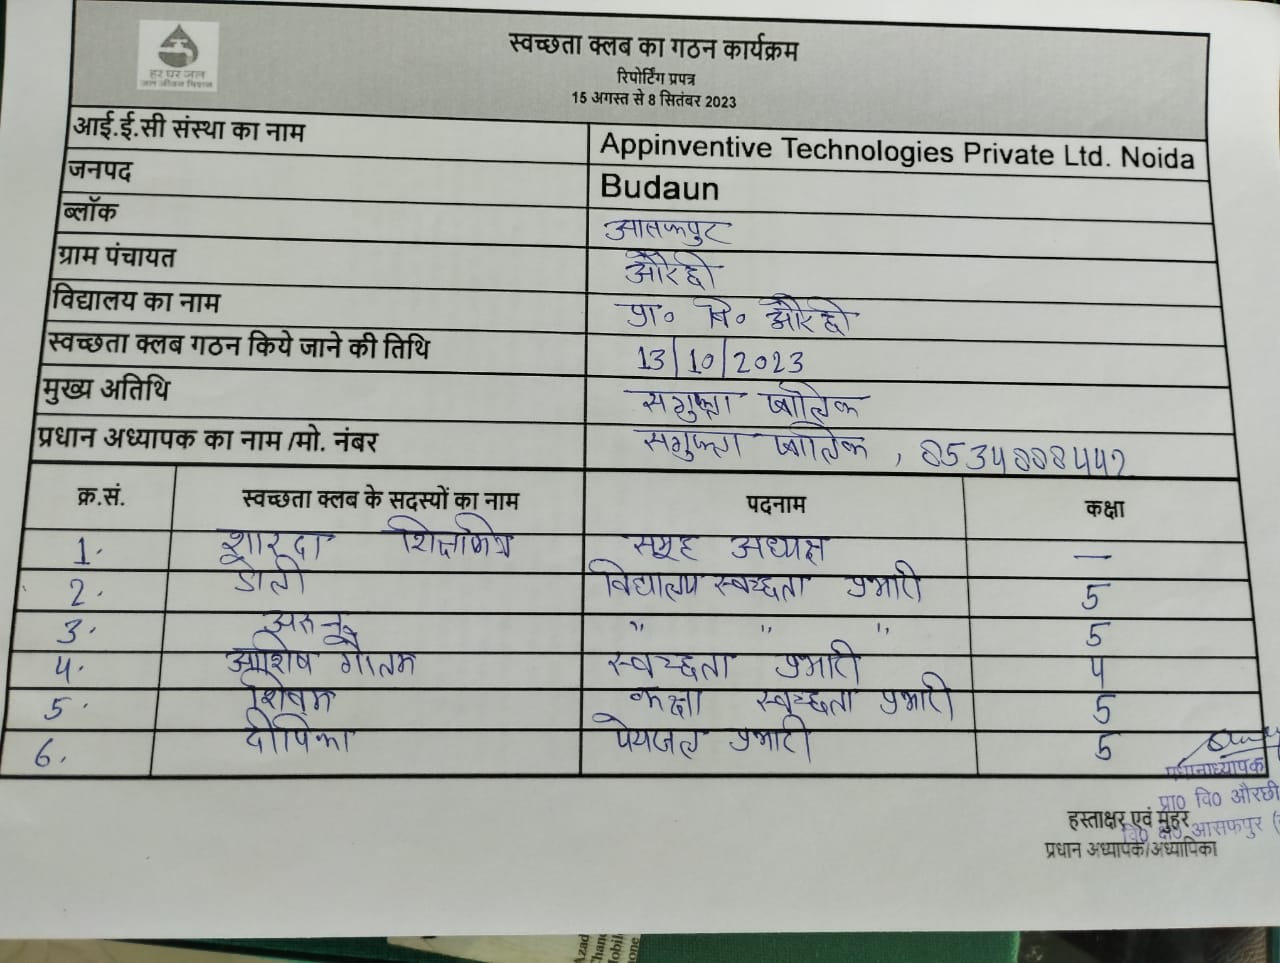 हर घर जल
जल जीवन मिशन
स्वच्छता क्लब का गठन कार्यक्रम
रिपोर्टिंग प्रपत्र
15 अगस्त से 8 सितंबर 2023
आई.ई.सी संस्था का नाम Appinventive Technologies Private Ltd. Noida
जनपद Budaun
ब्लॉक आसफपुर
ग्राम पंचायत औरछी
विद्यालय का नाम प्रा० वि० औरछी
स्वच्छता क्लब गठन किये जाने की तिथि 13/10/2023
मुख्य अतिथि
प्रधान अध्यापक का नाम /मो. नंबर
क्र.सं. स्वच्छता क्लब के सदस्यों का नाम पदनाम कक्षा
1. शारदा शिक्षामित्र समूह अध्यक्ष —
2. डोली विद्यालय स्वच्छता प्रभारी 5
3. " " " 5
4. आशिष गौतम स्वच्छता प्रभारी 4
5. कक्षा स्वच्छता प्रभारी 5
6. दीपिका पेयजल प्रभारी 5
प्रधानाध्यापक
प्रा० वि० औरछी
वि० क्षे० आसफपुर
हस्ताक्षर एवं मुहर
प्रधान अध्यापक/अध्यापिका